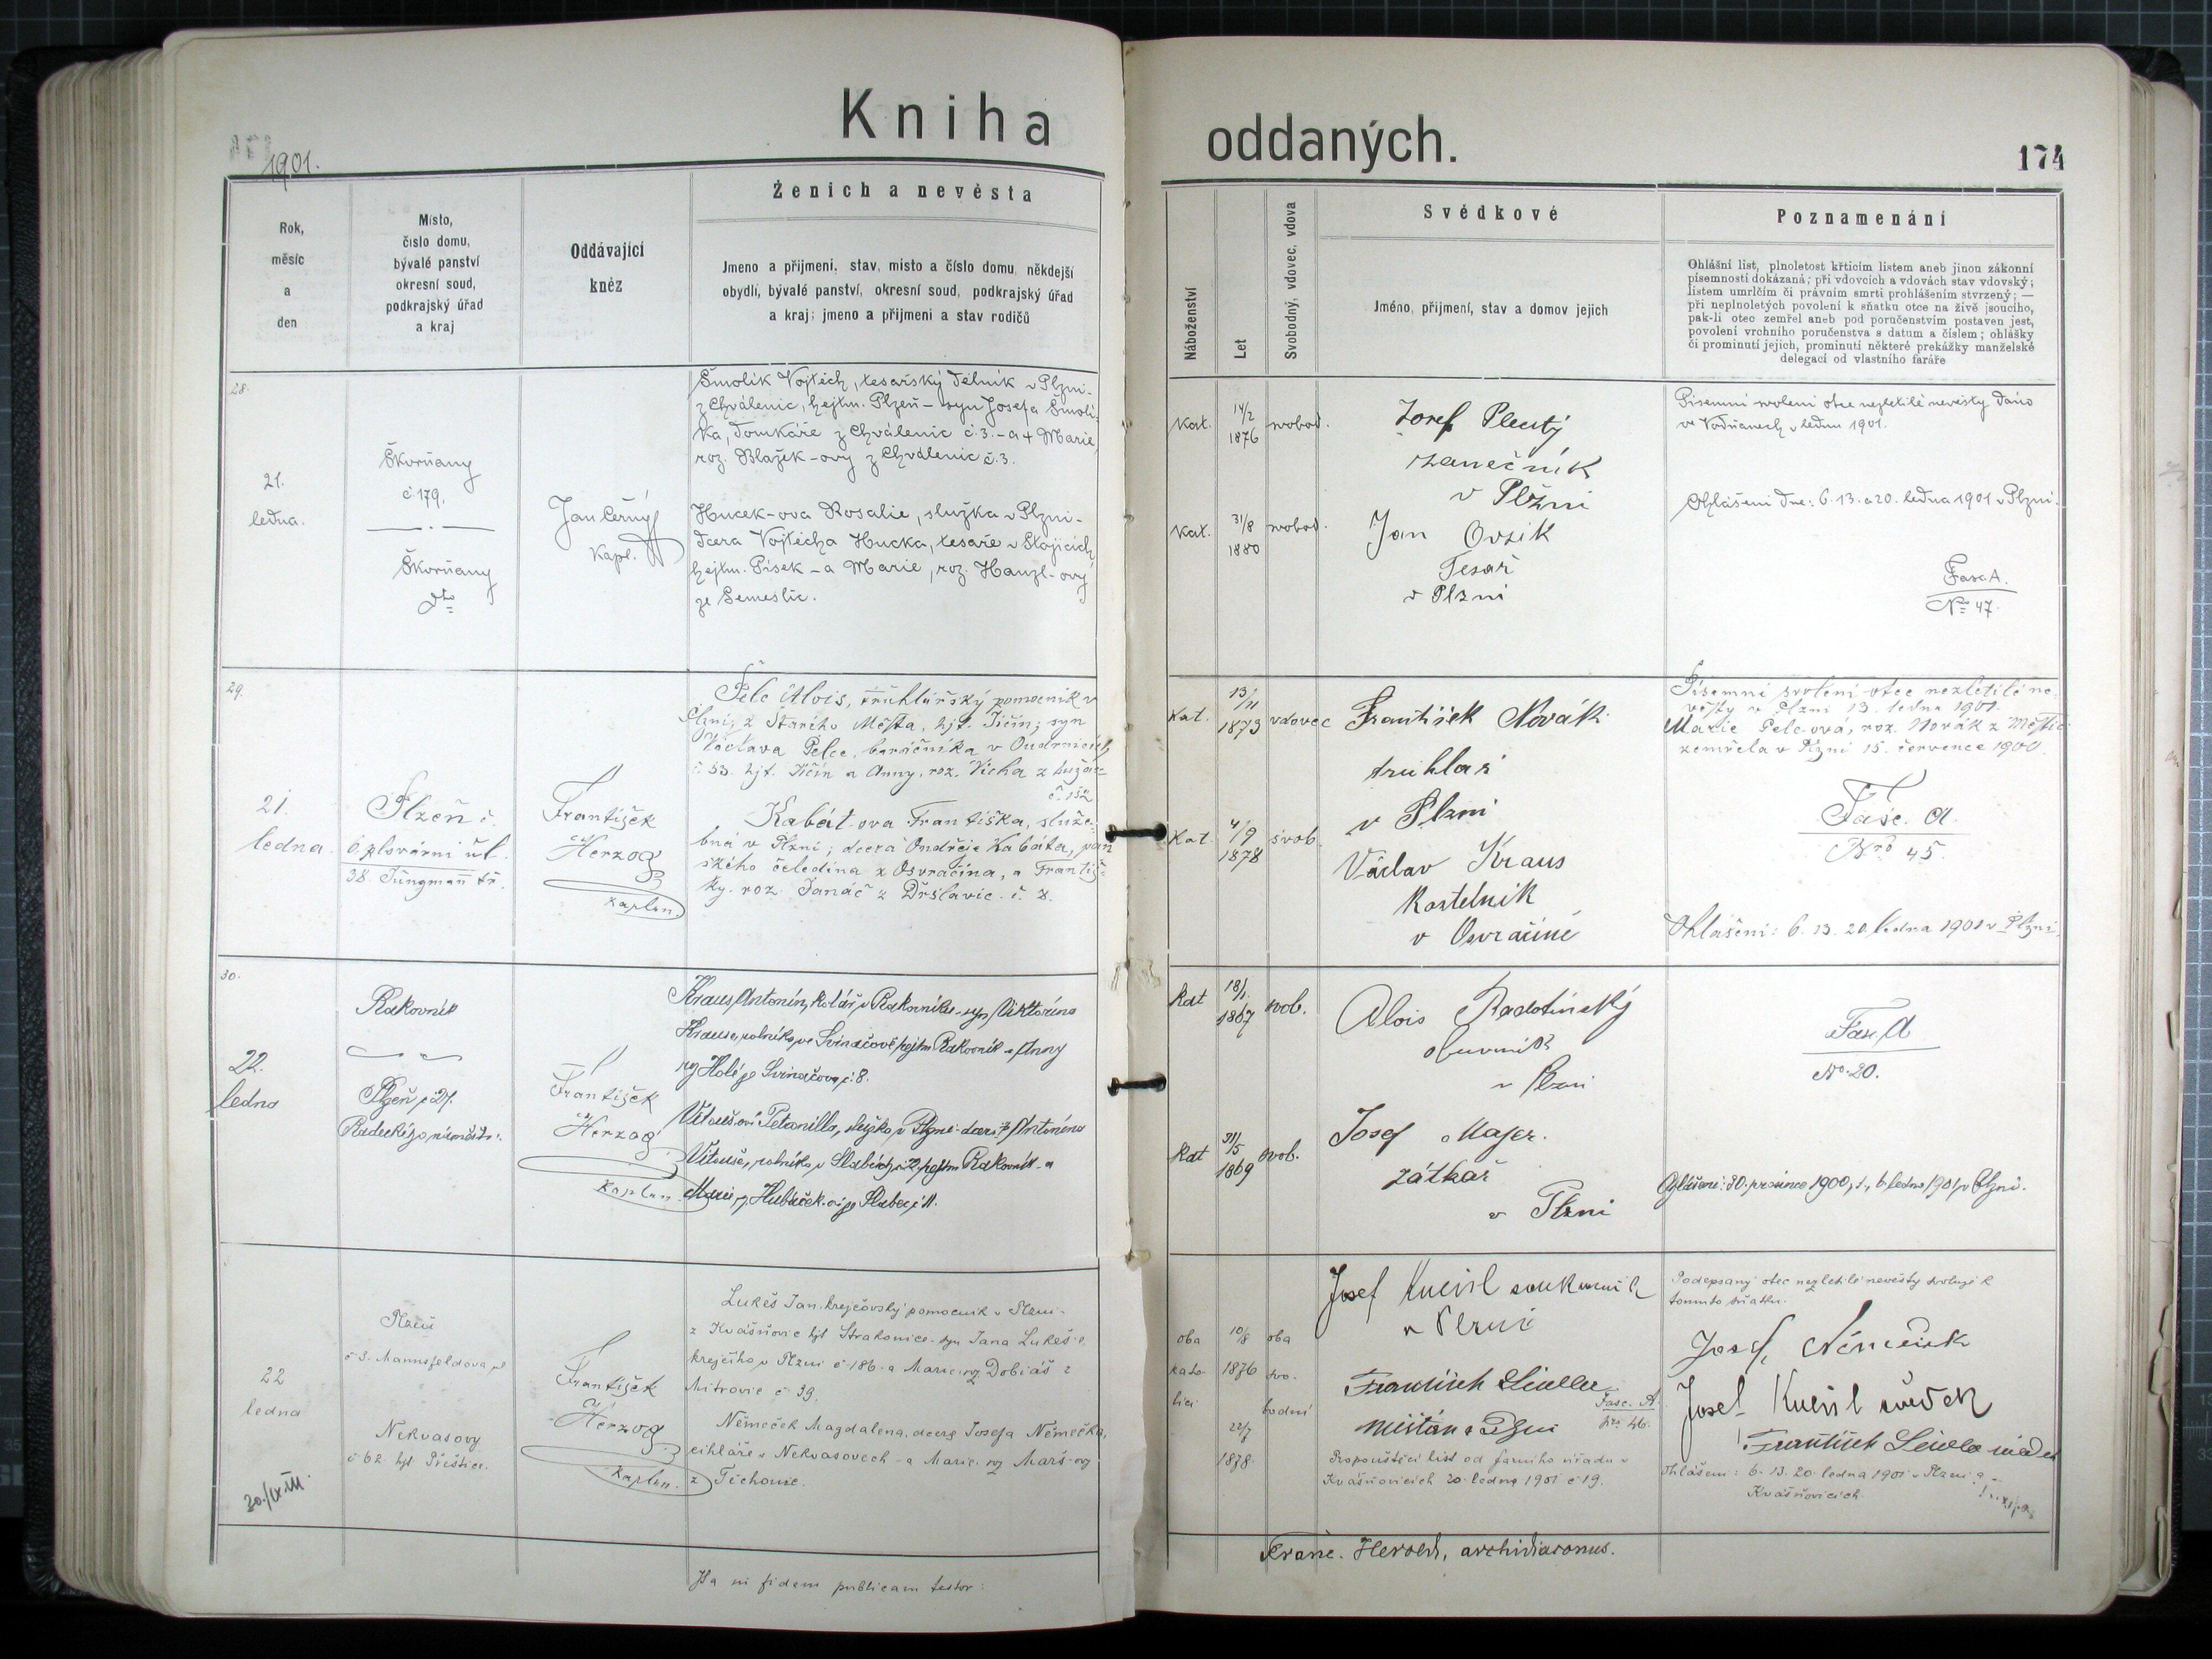 Kniha oddaných.
174
1901.
Rok,
měsíc
a
den
Místo,
číslo domu,
bývalé panství
okresní soud,
podkrajský úřad
a kraj
Oddávající
kněz
Ženich a nevěsta
Jmeno a přijmeni, stav, misto a číslo domu, někdejší
obydlí, bývalé panství, okresní soud, podkrajský úřad
a kraj; jmeno a přijmeni a stav rodičů
Náboženství
Let
Svobodný, vdovec, vdova
Svědkové
Jméno, přijmení, stav a domov jejich
Poznamenání
Ohlášní list, plnoletost křticím listem aneb jinou zákonní
písemností dokázaná; při vdovcích a vdovách stav vdovský;
listem umrlčím či právním smrti prohlášením stvrzený; —
při neplnoletých povolení k sňatku otce na živě jsoucího,
pak-li otec zemřel aneb pod poručenstvím postaven jest,
povolení vrchního poručenstva s datum a číslem; ohlášky
či prominutí jejich, prominutí některé prekážky manželské
delegací od vlastního faráře
28.
21.
ledna.
Škvrňany
č 179.
Škvrňany
dto
Jan Černý
Kapl.
Šmolík Vojtěch, tesařský dělník v Plzni-
z Chválenic, hejtm. Plzeň – syn Josefa Šmolí-
ka, domkáře z Chválenic č.3. – a + Marie,
roz. Blažek-ovy z Chválenic č.3.
Hucek-ova Rosalie, služka v Plzni-
dcera Vojtěcha Hucka, tesaře v Stojicích,
hejtm. Písek – a Marie, roz. Hanzl-ovy
ze Semeslic.
kat.
14/2
1876
svobod.
kat.
31/8
1880
svobod.
Josef Plecitý
v Plzni
Jan Ovsík
Tesař
v Plzni
Písemní svolení otce nezletilé nevěsty dáno
ve Vodňanech v lednu 1901.
Ohlášeni dne: 6. 13. a 20. ledna 1901 v Plzni.
Fasc. A.
No 47.
29.
21.
ledna.
Plzeň č.
6. plovární ul.
38. Jungman tř.
František
Herzog
kaplan.
Pelc Alois, truhlářský pomocník v
Plzni, z Starého Města, hjt. Jičín; syn
Václava Pelce, baráčníka v
č. 53. hjt. Jičín a Anny, roz. Vícha z
č. 152
Kabát-ova Františka, služe-
bná v Plzni; dcera Ondřeje Kabáta, pan
ského čeledína z Osvračína, a Františ-
ky, roz. Janáč z Drslavic. č. 8.
Kat.
13/11
1873
vdovec
Kat.
4/9
1878
svob.
František Novák
truhlař
v Plzni
Václav Kraus
Kostelník
v Osvračíně
Písemní svolení otce nezletilé ne-
věsty v Plzni 13. ledna 1901.
Marie Pelc-ová, roz. Novák z
zemřela v Plzni 15. července 1900.
Fasc. A.
Nro 45.
Ohlášeni: 6. 13. 20. ledna 1901 v Plzni.
30.
22.
ledna
Rakovník
Plzeň č 21.
Radeckého náměstí.
František
Herzog
Kaplan.
Kraus Antonín, kolář v Rakovníku – syn Viktorína
Krause, rolníka ve Svinařově hejtm Rakovník – a Anny
rz Holé ze Svinařova č. 8.
Vitouš-ová Petronilla, služka v Plzni – dcera + Antonína
Vitouše, rolníka v Slabcích č 2, hejtm Rakovník – a
Marie, rz Hubáček-ové ze Slabec č 11.
Kat
18/1
1867
svob.
Kat
31/5
1869
svob.
Alois Radotínský
obuvník
v Plzni
Josef Majer.
zátkař
v Plzni
Fasc A
No. 20.
Ohlášeni: 30. prosince 1900, 1., 6 ledna 1901 v Plzni.
22
ledna
Plzeň
č 3. Mannsfeldova ul
Nekvasovy
č 62. hjt Přeštice.
František
Herzog
Kaplan.
Lukeš Jan, krejčovský pomocník v Plzni-
z Kvášňovic hjt Strakonice – syn Jana Lukeše,
krejčího v Plzni č 186 – a Marie, rz Dobiáš z
Mitrovic č 39.
Němeček Magdalena, dcera Josefa Němečka,
cihláře v Nekvasovech – a Marie, rz Marš-ovy
z Těchonic.
oba
kato-
líci
10/8
1876
22/7
1878.
oba
svo-
bodní
Josef Kneisl soukenník
v Plzni
Fasc. A.
Nro 46.
měšťan v Plzni
Propouštěcí list od farního úřadu v
Kvášňovicích 20. ledna 1901 č 19.
Podepsaný otec nezletilé nevěsty svoluje k
tomuto sňatku.
Josef Němeček
Josef Kneisl svědek
Ohlášeni: 6. 13. 20. ledna 1901 v Plzni a
Kvášňovicích
Franc. Herold, archidiaconus.
Ita in fidem publicam testor: